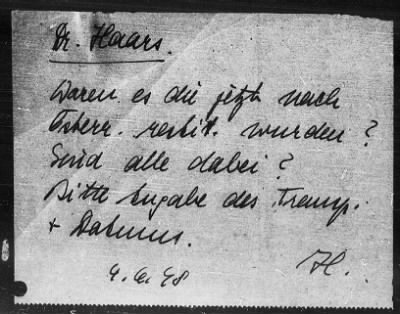 Dr. Haars.
Waren es die jetzt nach
Österr. restit. wurden?
Sind alle dabei?
Bitte Angabe des Transp.
+ Datums.
4.6.48
H.